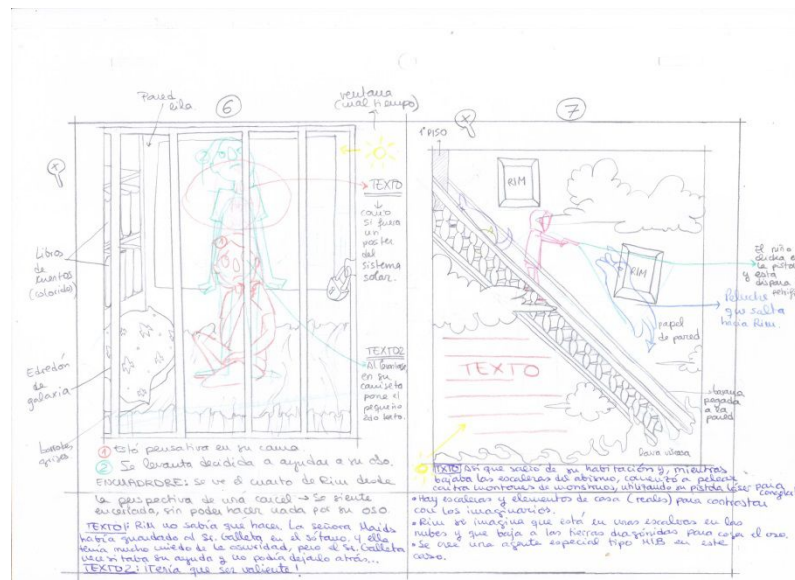 Pared
lila
6
ventana
(mal tiempo)
TEXTO
como
si fuera
un
poster
del
sistema
solar.
Libros
de
cuentos
(colorido)
Edredón
de
galaxia
barrotes
grises
TEXTO2
en su
camiseta
pone el
pequeño
1 Está pensativa en su cama.
2 Se levanta decidida a ayudar a su oso.
ENCUADRE: Se ve el cuarto de Rim desde
la perspectiva de una carcel → Se siente
encerrada, sin poder hacer nada por su oso
TEXTO1: Rim no sabía que hacer. La señora Maids
había guardado al Sr. Galleta en el sótano, y ella
tenía mucho miedo de la oscuridad, pero el Sr. Galleta
necesitaba su ayuda y no podía dejarlo atrás...
TEXTO2: ¡Tenía que ser valiente!
7
1º PISO
RIM
RIM
El niño
la pistola
y esta
dispara
Peluche
que salta
hacia Rim.
papel
de pared
pegada
a la
pared
TEXTO
lava
TXTO: Así que salió de su habitación y, mientras
bajaba las escaleras del abismo, comenzó a pelear
contra montones de monstruos, utilizando su pistola láser para
congelar
• Hay escaleras y elementos de casa (reales) para contrastar
con los imaginarios.
• Rim se imagina que está en unas escaleras en las
nubes y que baja a las tierras dragónidas para coger el oso.
• Se cree una agente especial tipo MIB en este
caso.